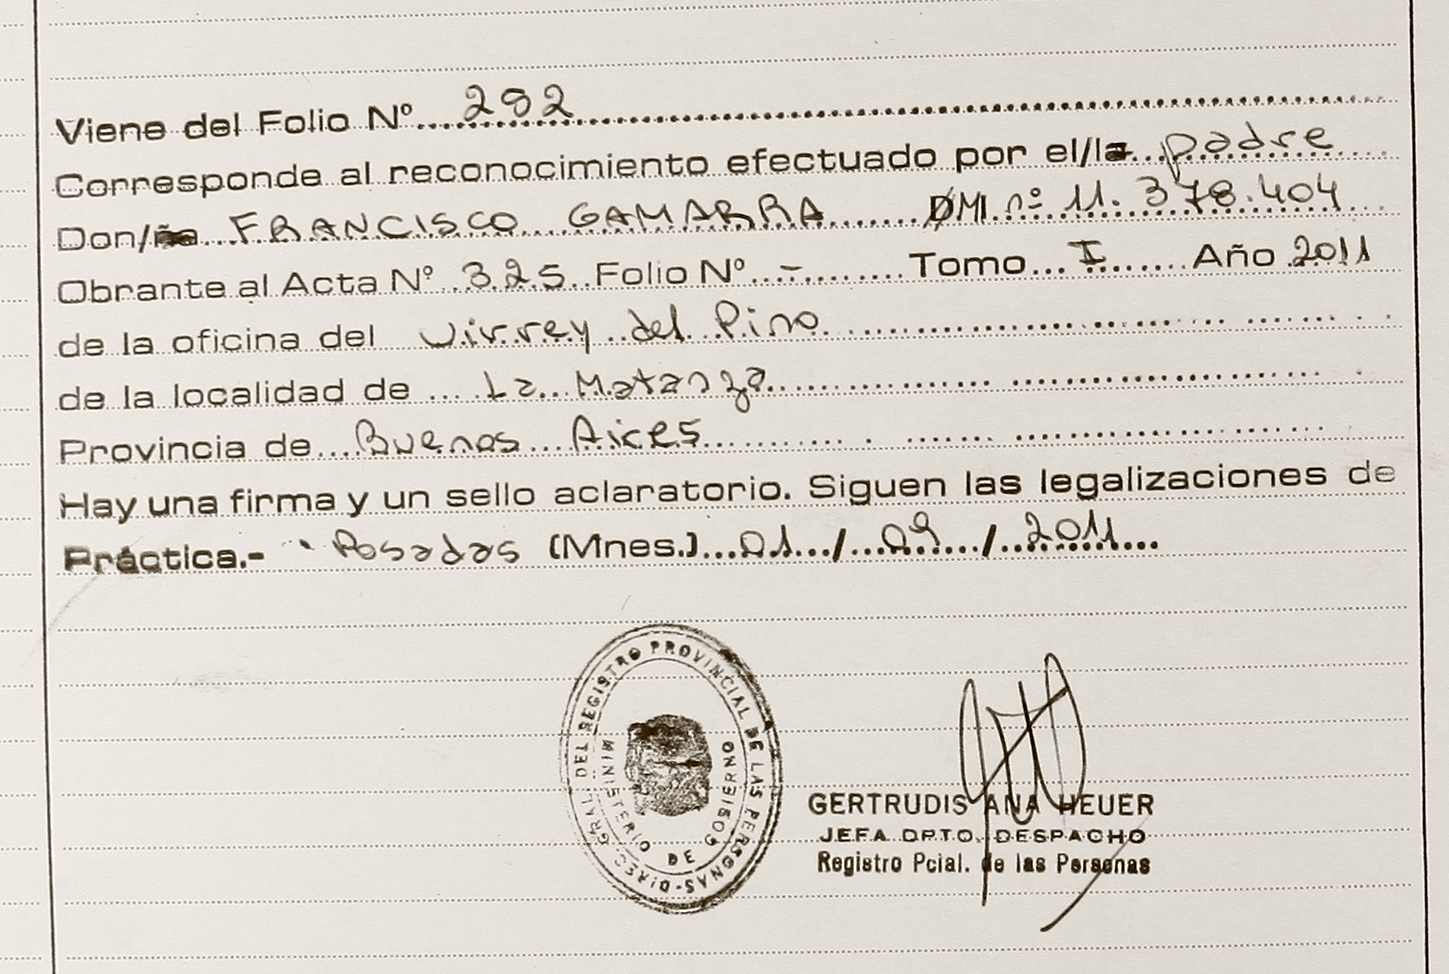 Viene del Folio Nº 292
Corresponde al reconocimiento efectuado por el/la padre
Don/ña FRANCISCO GAMARRA DMI nº 11.378.404
Obrante al Acta Nº 325 Folio Nº - Tomo I Año 2011
de la oficina del Virrey del Pino
de la localidad de La Matanza
Provincia de Buenos Aires
Hay una firma y un sello aclaratorio. Siguen las legalizaciones de
Práctica.- Posadas (Mnes.) 01/09/2011
DIREC. GRAL. DEL REGISTRO PROVINCIAL DE LAS PERSONAS-
MINISTERIO DE GOBIERNO
GERTRUDIS ANA HEUER
JEFA DPTO. DESPACHO
Registro Pcial. de las Personas